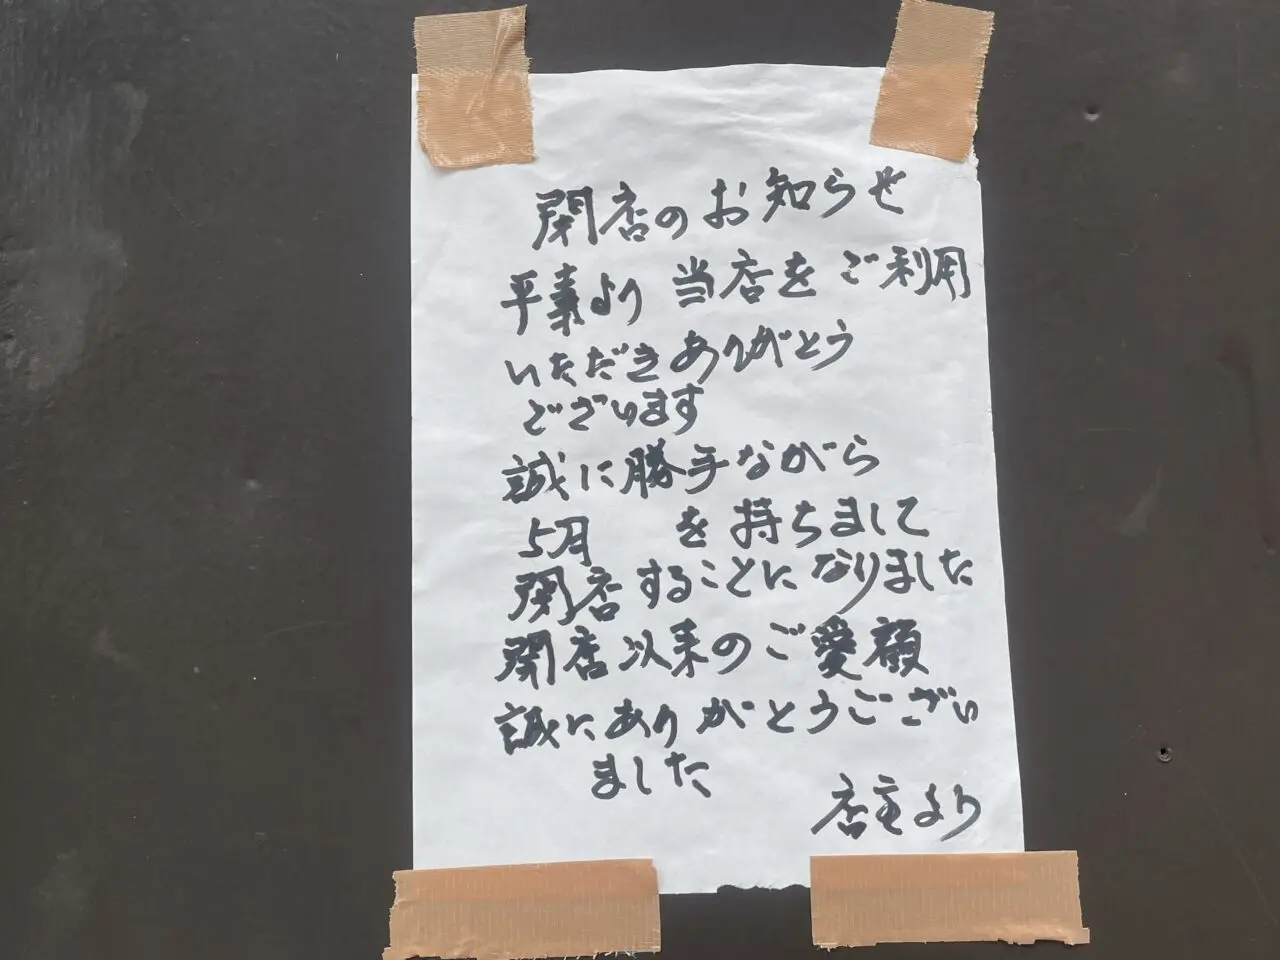 閉店のお知らせ
平素より当店をご利用
いただきありがとう
ございます
誠に勝手ながら
5月 を持ちまして
閉店することになりました
開店以来のご愛顧
誠にありがとうござい
ました
店主より